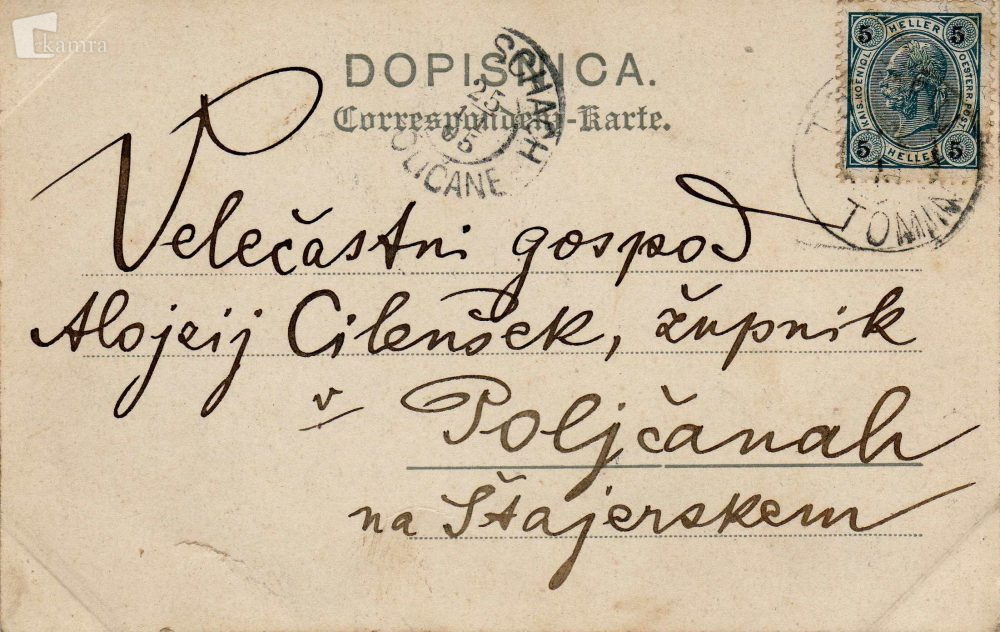 kamra
DOPISNICA.
Correspondenz-Karte.
5 HELLER 5
KAIS. KOENIGL. OESTERR. POST
5 HELLER 5
25
05
POLIČANE
TOMIN
Velečastni gospod
Alojzij Cilenšek, župnik
v Poljčanah
na Štajerskem